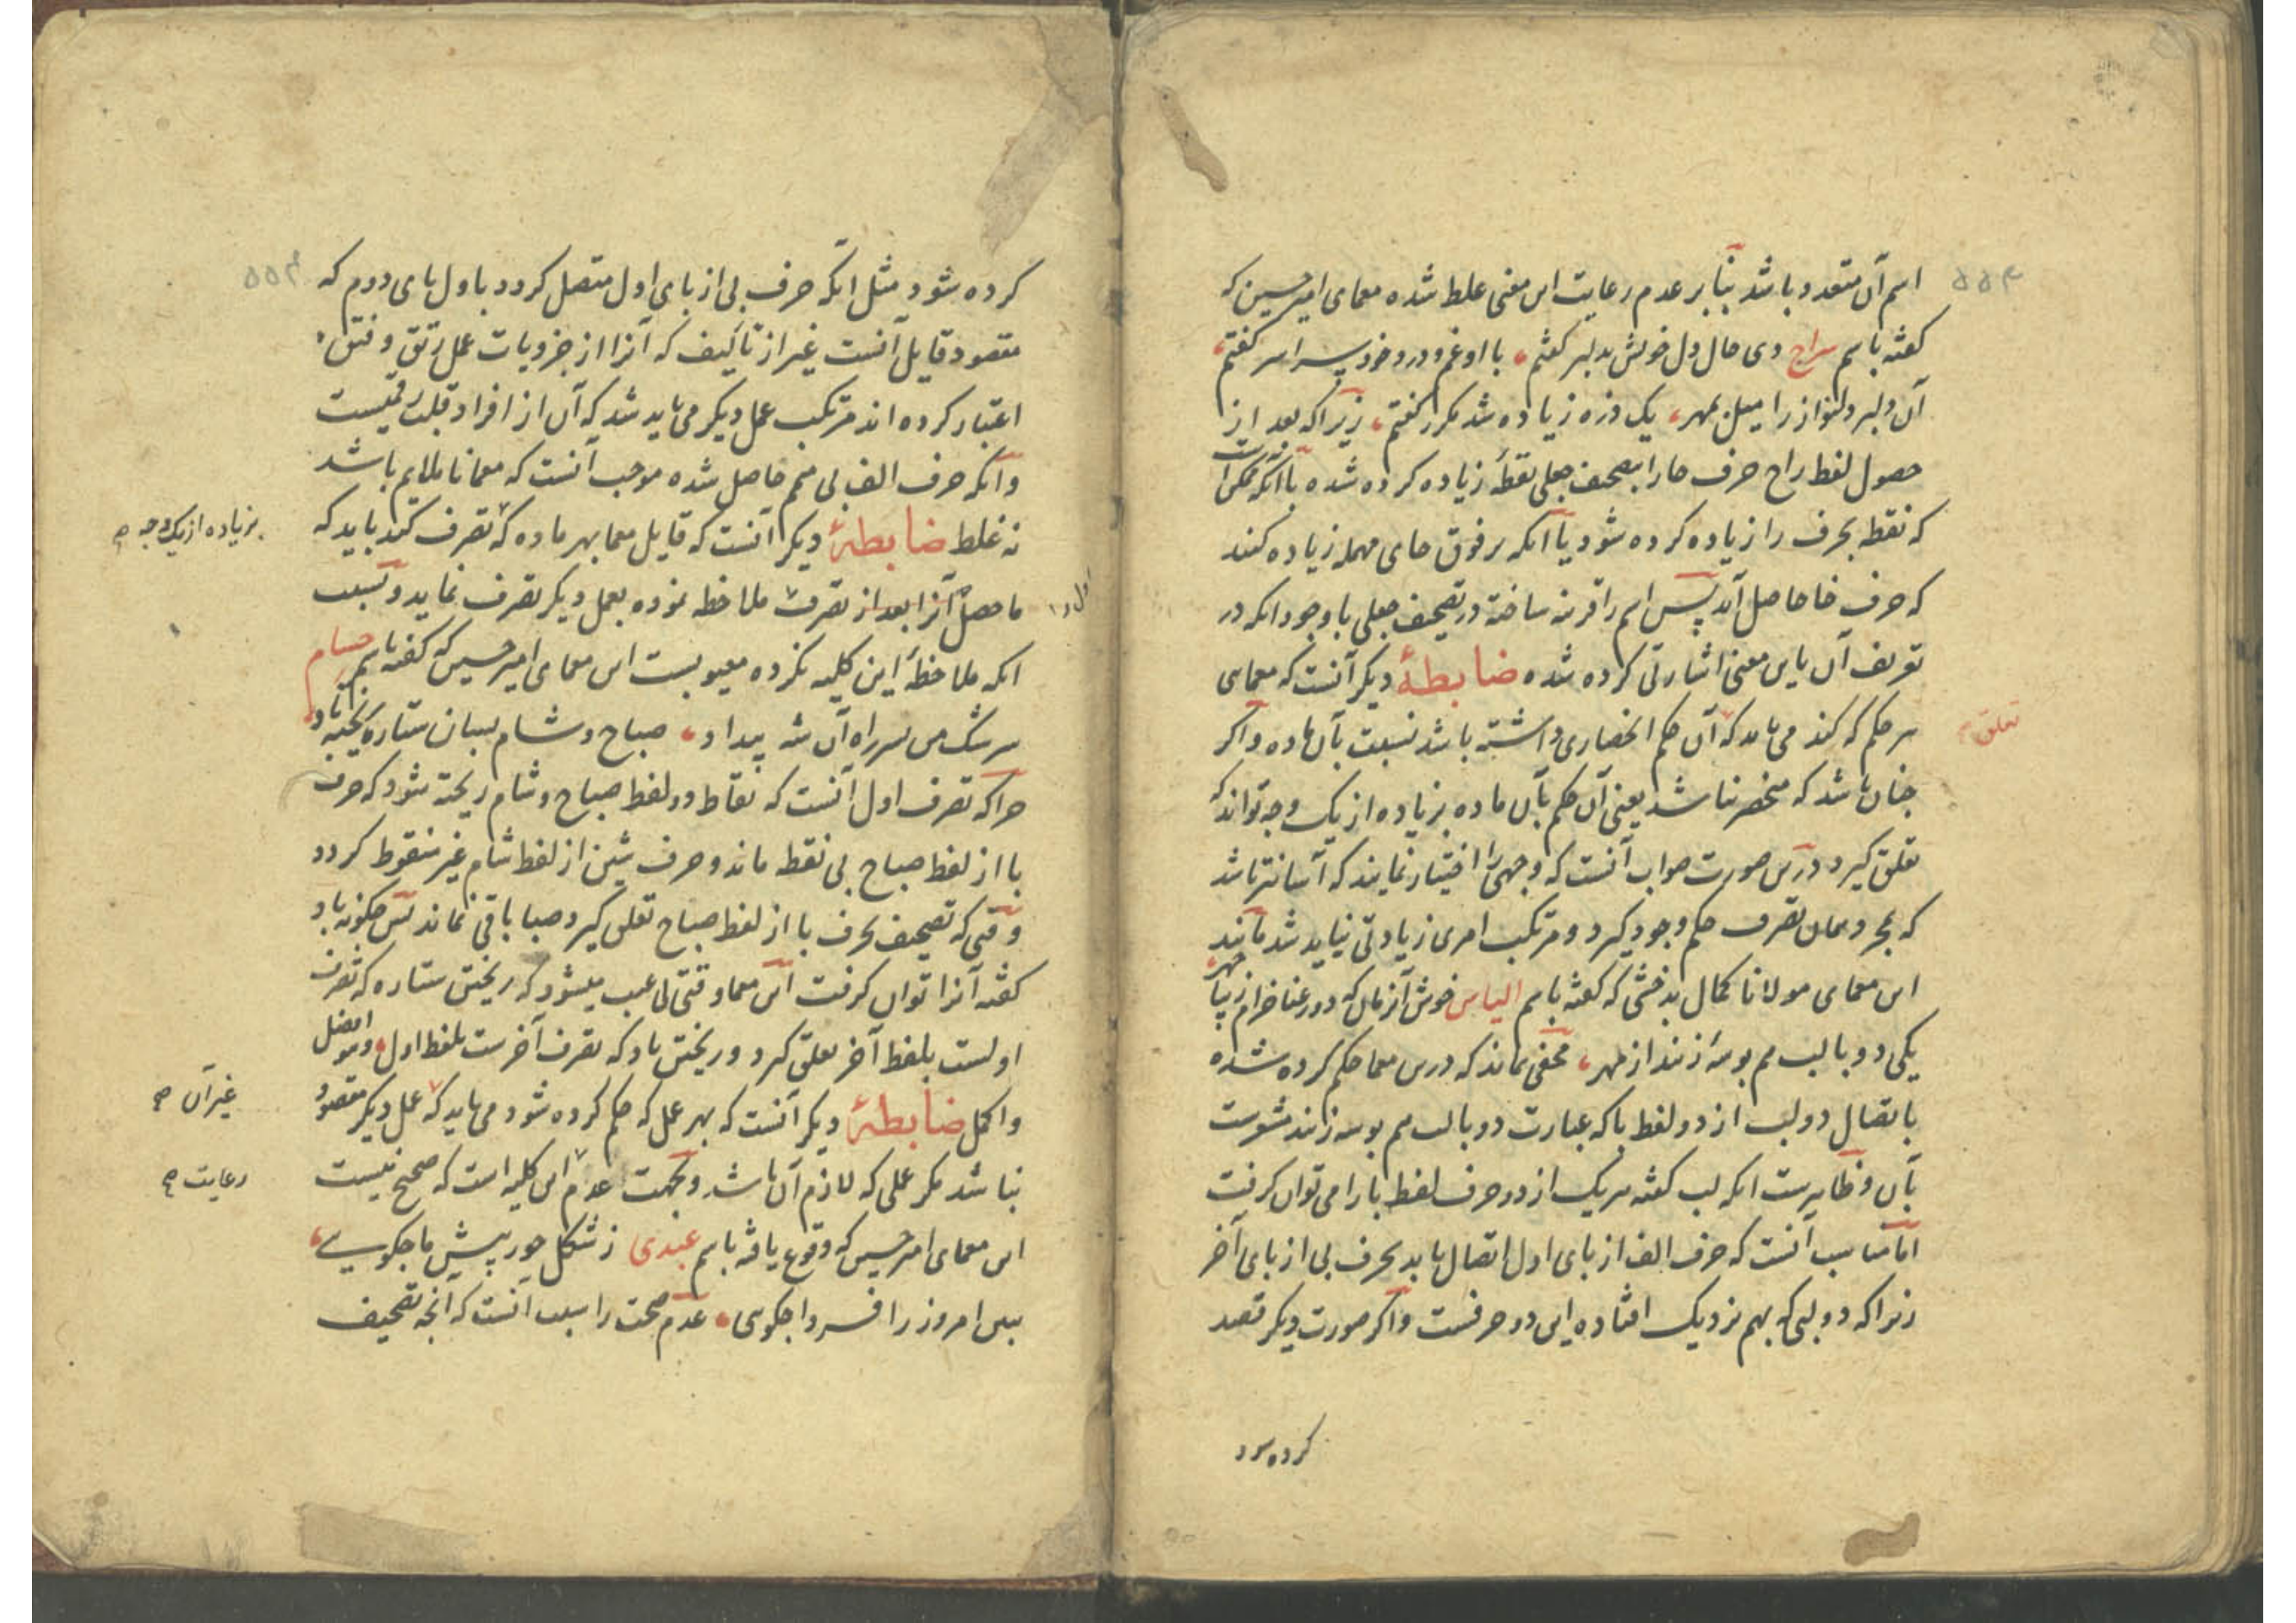 اسم آن متعدد باشد بنابر عدم رعایت این معنی غلط شده معمای امیر حسین که
گفته باسم سراج دی حال دل خویش بدلبر گفتم با او غم و درد خود سراسر گفتم
آن دلبر دلنواز را میل بمهر یک ذره زیاده شد مکرر گفتم زیرا که بعد از
حصول لفظ راح حرف حا را بتصحیف جعلی نقطهٔ زیاده کرده شده با آنکه ممکن است
که نقطه بحرف را زیاده کرده شود یا آنکه بر فوق حای مهمله زیاده کنند
که حرف خا حاصل آید پس اسم را قرینه ساخته در تصحیف جعلی با وجود انکه در
تعریف آن باین معنی اشارتی کرده شده ضابطهٔ دیگر آنست که معمای
بر حکم که کند می باید که آن حکم انحصاری داشته باشد نسبت بآن ماده و اکر
تعلق
چنان باشد که منحصر نباشد یعنی آن حکم بآن ماده بزیاده از یک وجه تواند که
تعلق گیرد درین صورت صواب آنست که وجهی را اختیار نمایند که آسانتر باشد
که بمجرد همان تصرف حکم وجود گیرد و مرتکب امری زیادتی نباید شد مانند
این معمای مولانا کمال بدخشی که گفته باسم الیاس خوش آنزمان که دو رعنا خرام زیبا چهر
یکی دو با لب هم بوسهٔ زنند از مهر مخفی نماند که درین معما حکم کرده شده
باتصال دو لب از دو لفظ با که عبارت دو با لب هم بوسه زنند مشعرست
بآن و ظاهرست انکه لب گفته هر یک از دو حرف لفظ با را می توان گرفت
اما مناسب آنست که حرف الف از بای اول اتصال یابد بحرف بی از بای آخر
زیرا که دو لبی که بهم نزدیک افتاده این دو حرفست و اگر صورت دیگر قصد
کرده شود
کرده شود مثل انکه حرف بی از بای اول متصل گردد باول بای دوم که
مقصود قایل آنست غیر از تألیف که آنرا از جزویات عمل رتق و فتق
اعتبار کرده اند مرتکب عمل دیگر می باید شد که آن از افراد قلبست
و آنکه حرف الف بی هم حاصل شده موجب آنست که معما ناملایم باشد
نه غلط ضابطهٔ دیگر آنست که قایل معما بهر ماده که تصرف کند باید که
بزیاده از یک وجه صح
ما حصل آنرا بعد از تصرف ملاحظه نموده بعمل دیگر تصرف نماید و بسبب
انکه ملاحظهٔ این کلیه نکرده معیوبست این معمای امیر حسین که گفته باسم حسام
سرشک من بر سر راه آن مه پیدا و صباح و شام بسان ستاره ریخته باد
چرا که تصرف اول آنست که نقاط دو لفظ صباح و شام ریخته شود که حرف
با از لفظ صباح بی نقطه ماند و حرف شین از لفظ شام غیر منقوط گردد
وقتی که تصحیف بحرف با از لفظ صباح تعلق گیرد صبا باقی نماند پس چگونه باد
گفته آنرا توان گرفت این معما وقتی بی عیب میشود که ریختن ستاره که تصرف
اولست بلفظ آخر تعلق گیرد و ریختن باد که تصرف آخرست بلفظ اول و هو افضل
و اکمل ضابطهٔ دیگر آنست که بهر عمل که حکم کرده شود می باید که عمل دیگر مقصود
غیر آن صح
نباشد مگر عملی که لازم آن باشد و بجهت عدم این کلیه است که صحیح نیست
رعایت صح
این معمای امیر حسین که وقوع یافته باسم عبدی ز شکل حور پیش ما چکویی
ببین امروز را فردا چکویی عدم صحت را سبب آنست که آنچه تصحیف